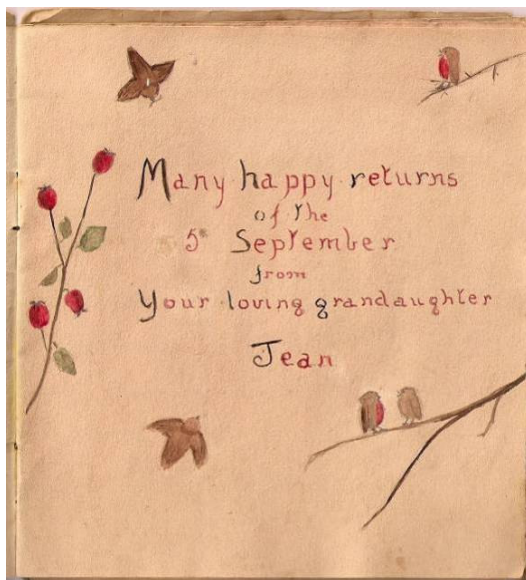 Many happy returns
of the
5th September
from
Your loving grandaughter
Jean